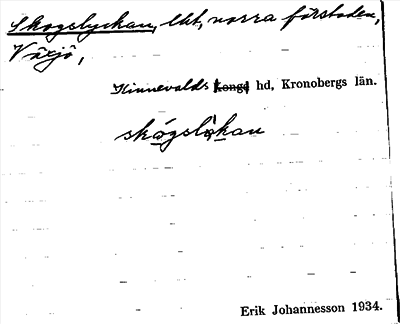 Skogslyckan, lht, norra förstaden,
Växjö,
Kinnevalds Konga hd, Kronobergs län.
skógslỳkan
Erik Johannesson 1934.